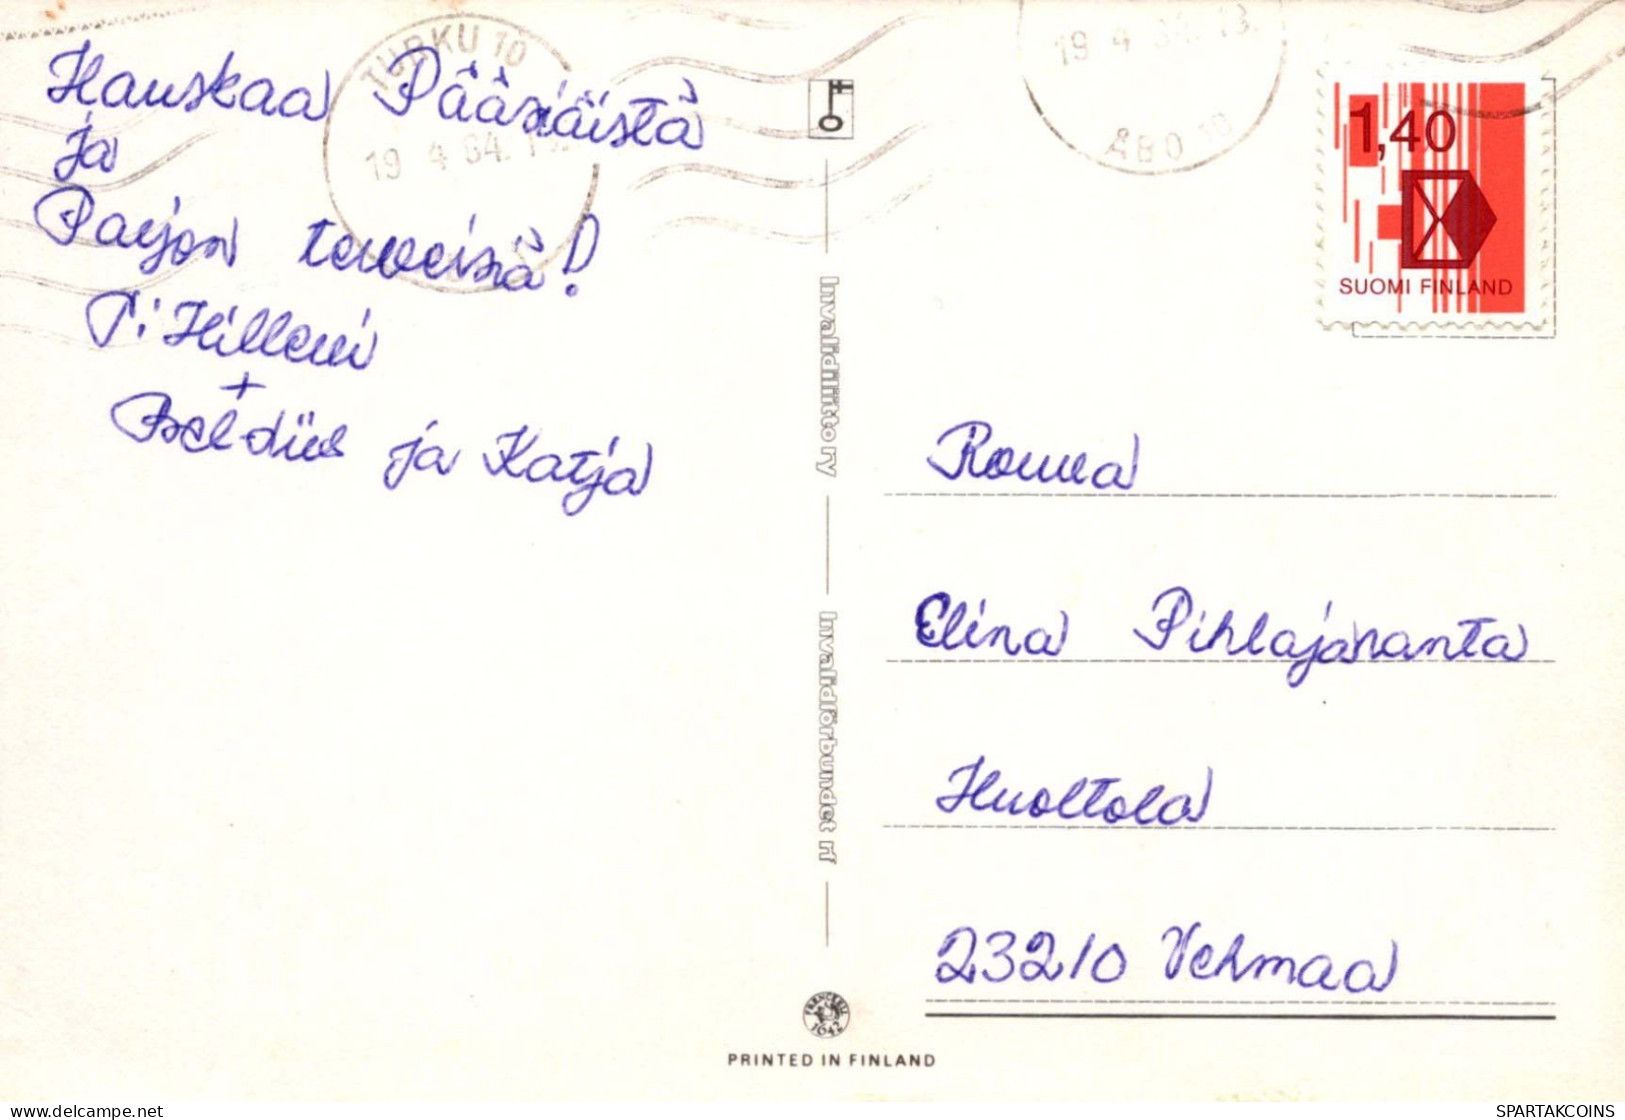 TURKU 10
19 4 84
Hauskaa Pääsiäistä
ja
Paljon terveisiä!
T: Hilleni
+
ja Katja
Invalidiliitto ry
Invalidförbundet rf
19 4 84. 13.
ÅBO 10
1,40
SUOMI FINLAND
Rouva
Elina Pihlajaranta
Huoltola
23210 Vehmaa
1642
PRINTED IN FINLAND
delcampe.net
SPARTAKCOINS